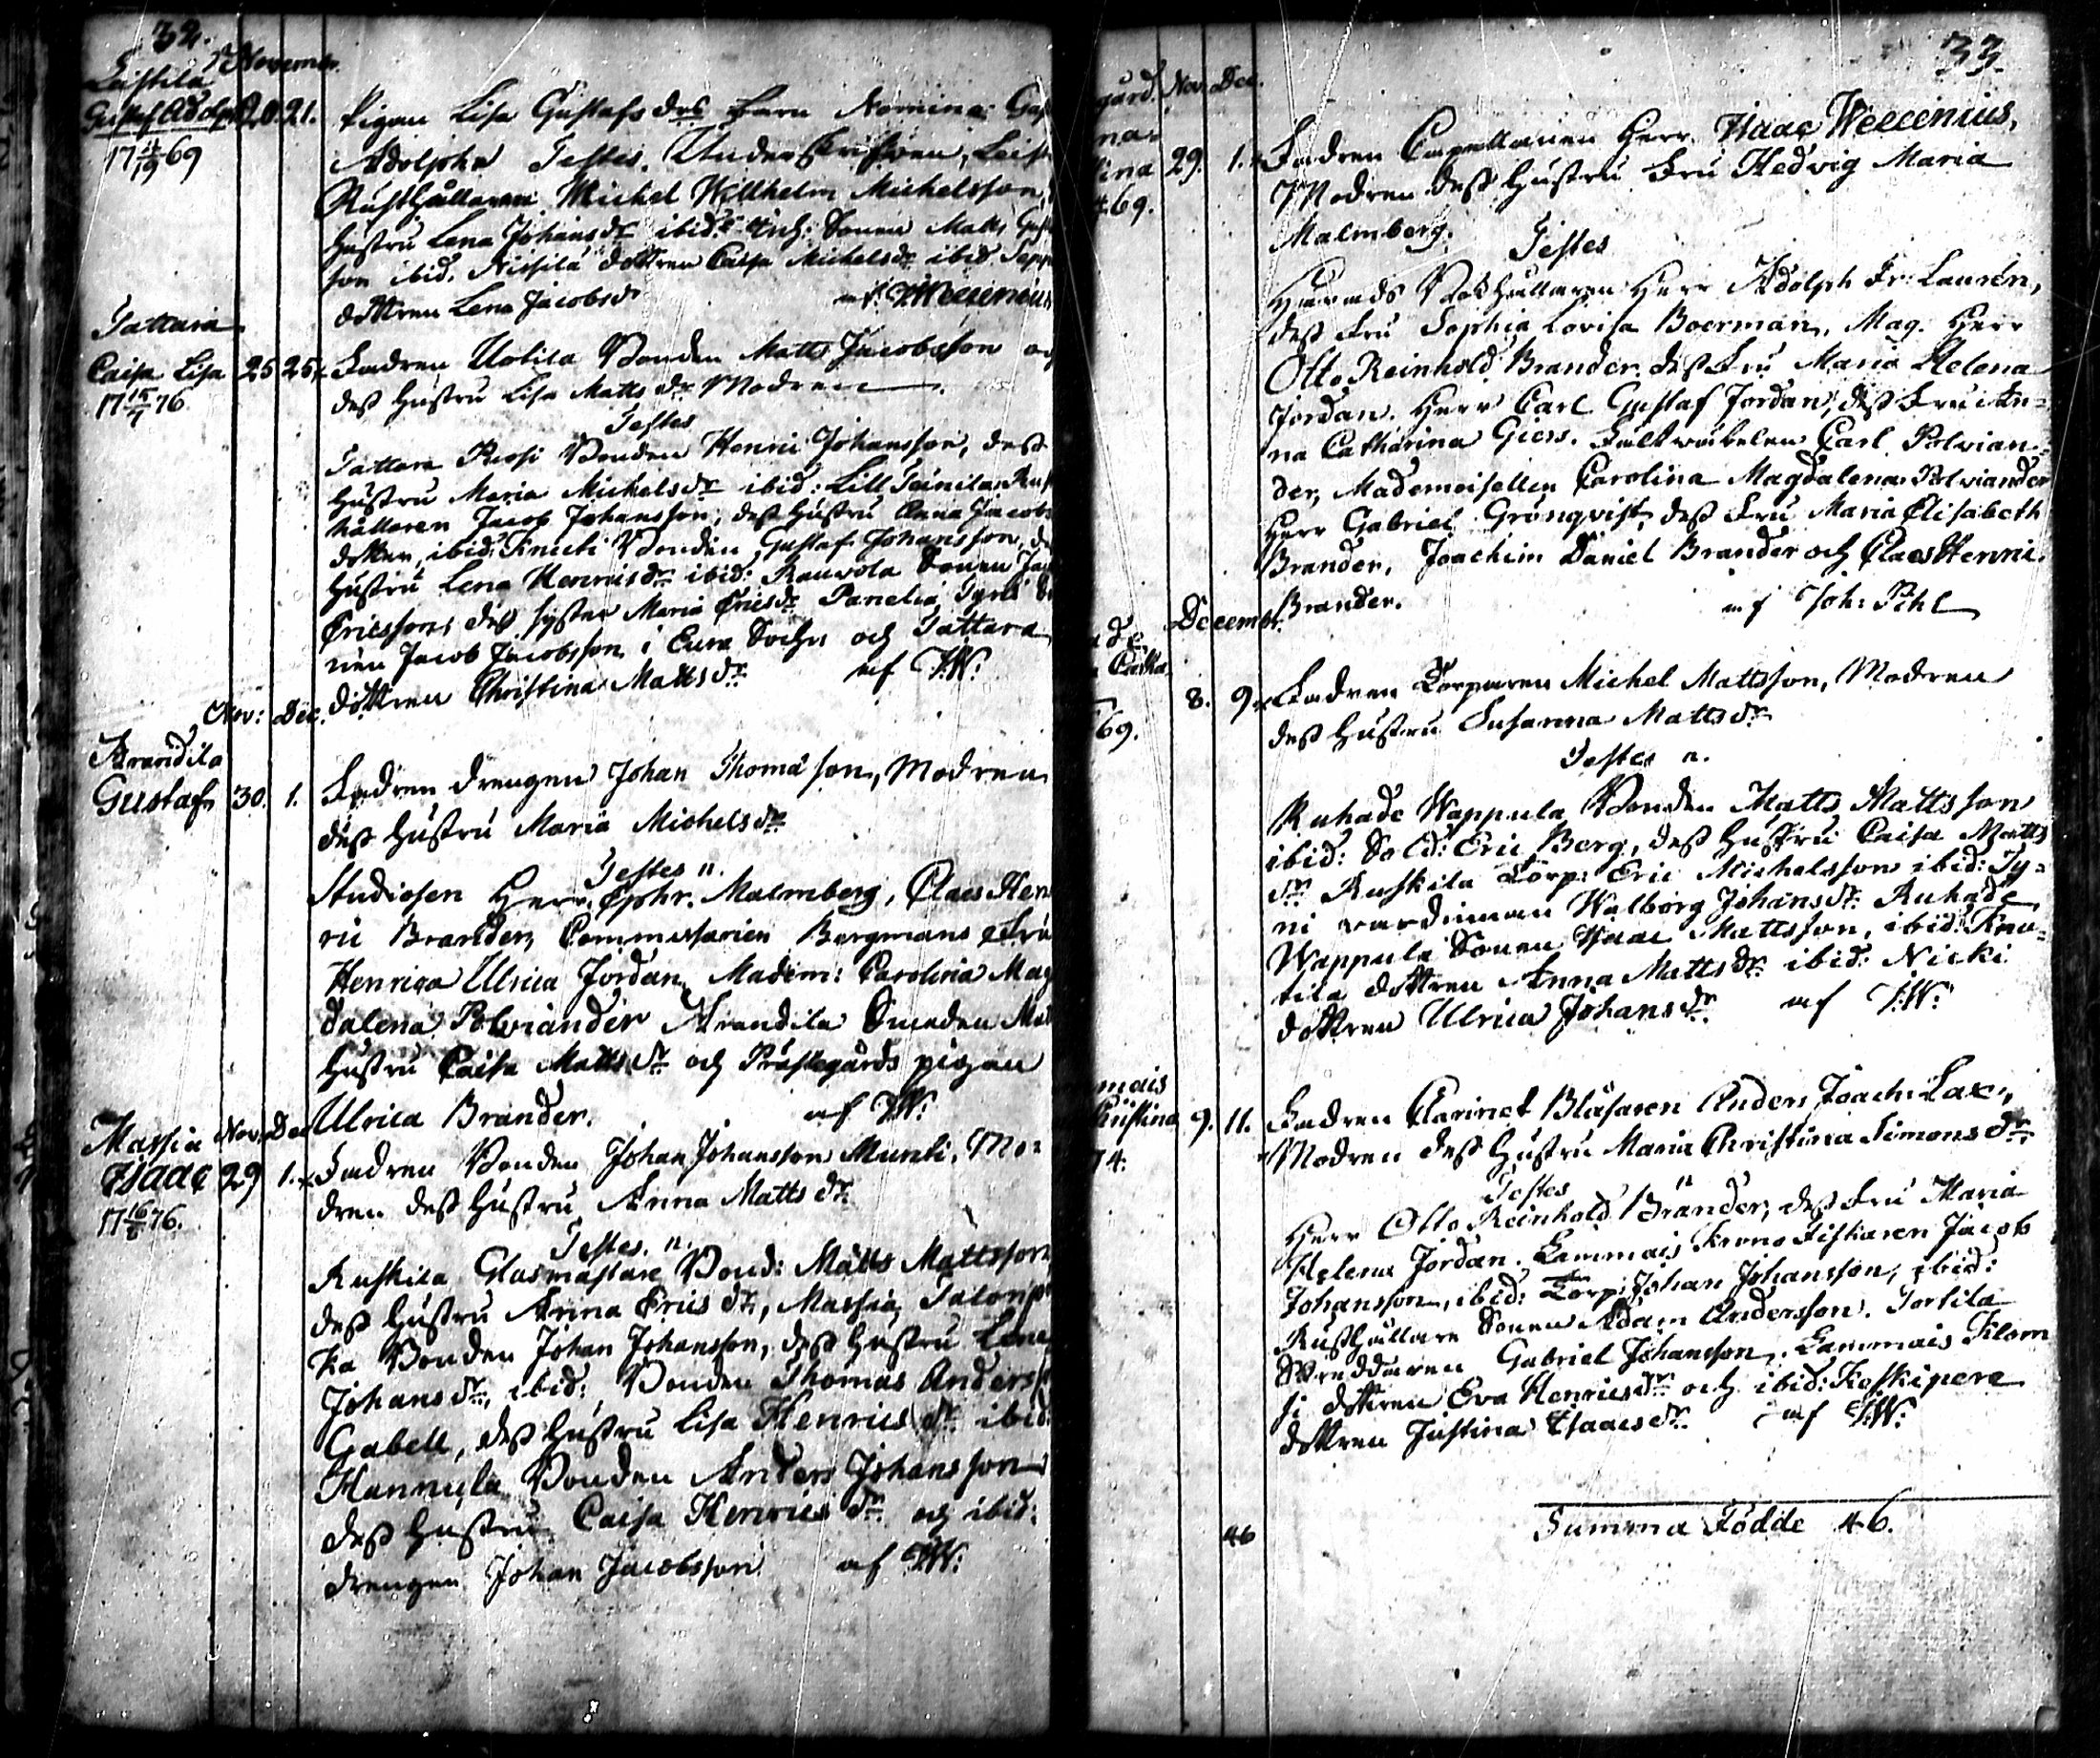 32.
November
Leistila
Gustaf Adolph 20. 21. Pigan Lisa Gustafs drs barn Nomine: Gus
17 4/9 69
Adolpho Testes. Underskrifven, Leis
Rusthållaren Michel Willhelm Michelsson,
hustru Lena Johansdr ibid: Sonen Matts Gust
son ibid. Nissilä dottren Caisa Michelsdr ibid. Sepp
dottren Lena Jacobsdr af IWellenius
Tattara
Caisa Lisa 25 25 Fadren Uotila Bonden Matts Jacobsson og
17 15/7 76
dess hustru Lisa Matts dr Modren
Testes
Tattara Prosi Bonden Henric Johansson, dess
hustru Maria Michelsdr ibid: Lill Teinila Rust
hållaren Jacob Johansson, dess hustru Anna Jacobs
dotter, ibid: Knuti Bonden Gustaf Johansson, de
hustru Lena Henricsdr ibid: Rauvola Sonen Ja
Ericsson, dess syster Maria Ericsdr Panelia
Jacob Jacobsson i Eura Sochn och Tattara
dottren Christina Matts dr. af I.W:
Nov: Dec.
Arandila
Gustaf 30. 1. Fadren drengen Johan Thomasson, Modren
dess hustru Maria Michelsdr
Testes n.
Studiosen Herr Ephr. Malmberg, Claes Hen
ric Brander, Commissarien Bergmans Fru
Henrica Ulrica Jordan, Madem: Carolina Mag
dalena Polviander Arandila Smeden
hustru Caisa Matts dr och Prästegårds pigan
Ulrica Brander. af IW:
Massia Nov. Dec
Isaac 29 1. Fadren Bonden Johan Johansson Munti, Mo=
17 16/6 76.
dren dess hustru Anna Matts dr.
Testes. n.
Ruskila Glasmästare Bond: Matts Mattsson
dess hustru Anna Erics dr, Massia, Talonpo
ka Bonden Johan Johansson, dess hustru Lena
Johans dr, ibid: Bonden Thomas Anders
Gabell, dess hustru Lisa Henrics dr ibid
Hannula Bonden Anders Johansson
dess hustru Caisa Henrics dr och ibid:
drengen Johan Jacobsson af IW:
33.
gård. Nov. Dec.
na
lina 29. 1. Fadren Capellanen Herr Isaac Wellenius,
69.
Modren dess hustru Fru Hedvig Maria
Malmberg.
Testes
Härads Herr Adolph Fr: Laurén,
dess Fru Sophia Lovisa Boerman, Mag. Herr
Otto Reinhold Brander, dess Fru Maria Helena
Jordan. Herr Carl Gustaf Jordan, dess Fru An=
na Catharina Giers. Carl Polvian=
der, Mademoisellen Carolina Magdalena Polviander
Herr Gabriel Grönqvist, dess Fru Maria Elisabeth
Brander, Joachim Daniel Brander och Claes Henric
Brander. af Joh: Pihl
December
8. 9. Fadren Torparen Michel Mattsson, Modren
69.
dess hustru Susanna Matts dr
Testes n.
Ruhade Wappula Bonden Matts Mattsson
ibid: Sold: Eric Berg, dess hustru Caisa Matts
dr. Ruskila Torp: Eric Michelsson ibid: Ty=
ni Walborg Johans dr: Ruhade
Wappula Sonen Isaac Mattsson, ibid: Knu=
tila dottren Anna Matts dr ibid: Nicki
dottren Ulrica Johans dr. af I.W:
mais
Christina 9. 11. Fadren Clarinet Blåsaren Anders Joach: Lax,
74.
Modren dess hustru Maria Christina Simons dr
Testes n
Herr Otto Reinhold Brander, dess Fru Maria
Helena Jordan. Lammais Krono Fiskaren Jacob
Johansson, ibid: Torp: Johan Johansson, ibid:
Rusthållare Sonen Adam Andersson. Torsila
Skräddaren Gabriel Johansson. Lammais Klom
si dottren Eva Henricsdr och ibid: Koskipere
dottren Justina Isaacs dr. af I.W:
46 Summa Födde 46.